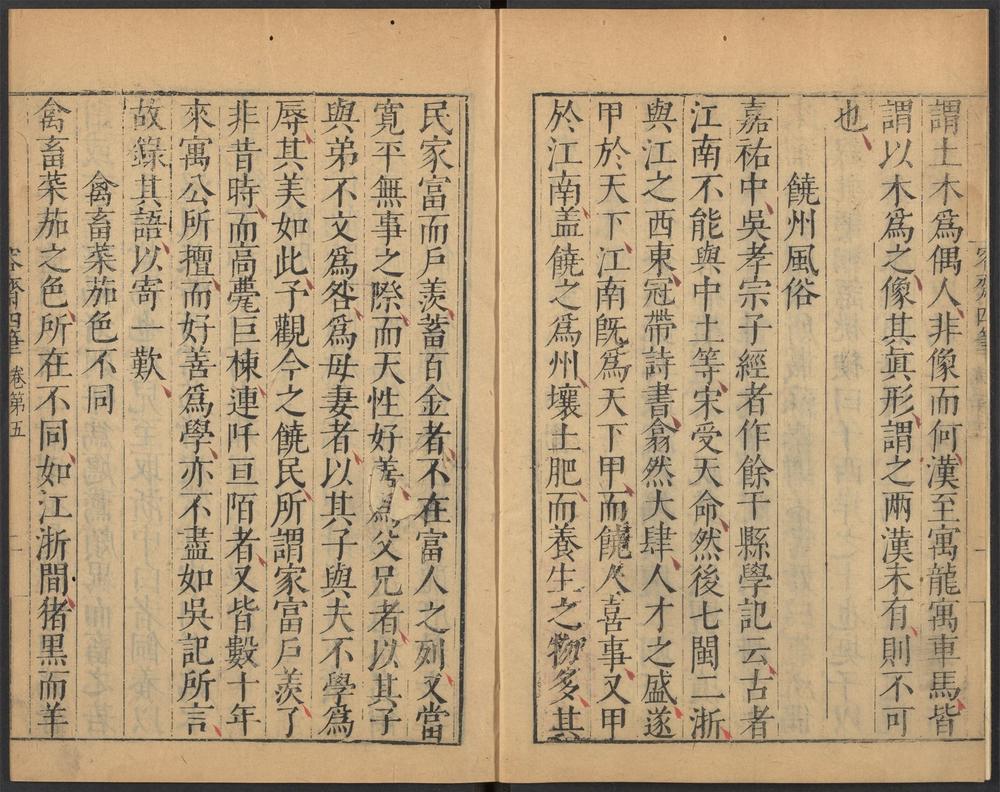 謂土木爲偶人非像而何漢至寓龍寓車馬皆
謂以木爲之像其眞形謂之兩漢未有則不可
也
饒州風俗
嘉祐中吳孝宗子經者作餘干縣學記云古者
江南不能與中土等宋受天命然後七閩二浙
與江之西東冠帶詩書翕然大肆人才之盛遂
甲於天下江南旣爲天下甲而饒人喜事又甲
於江南盖饒之爲州壤土肥而養生之物多其
民家富而戶羨蓄百金者不在富人之列又當
寛平無事之際而天性好善爲父兄者以其子
與弟不文爲咎爲母妻者以其子與夫不學爲
辱其美如此予觀今之饒民所謂家富戶羨了
非昔時而高甍巨棟連阡亘陌者又皆數十年
來寓公所擅而好善爲學亦不盡如吳記所言
故錄其語以寄一歎
禽畜菜茄色不同
禽畜菜茄之色所在不同如江浙間猪黑而羊
容齋四筆 卷第五